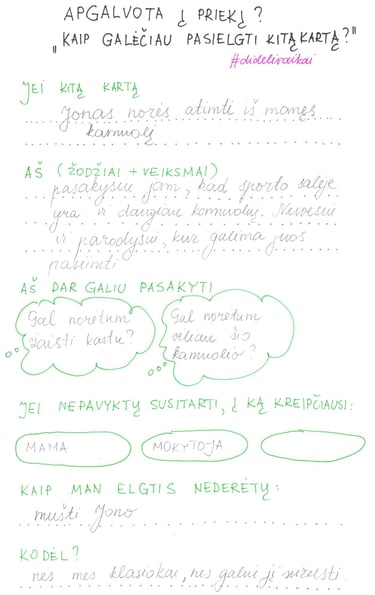 APGALVOTA Į PRIEKĮ?
„KAIP GALĖČIAU PASIELGTI KITĄ KARTĄ?"
#didelivaikai
JEI KITĄ KARTĄ
Jonas norės atimti iš manęs
kamuolį
AŠ (ŽODŽIAI + VEIKSMAI)
pasakysiu jam, kad sporto salėje
yra ir daugiau kamuolių. Nuvesiu
ir parodysiu, kur galima juos
pasiimti
AŠ DAR GALIU PASAKYTI
Gal norėtum
žaisti kartu?
Gal norėtum
vėliau šio
kamuolio?
JEI NEPAVYKTŲ SUSITARTI, Į KĄ KREIPČIAUSI:
MAMA
MOKYTOJA
KAIP MAN ELGTIS NEDERĖTŲ:
mušti Jono
KODĖL?
nes mes klasiokai, nes galiu jį sužeisti.